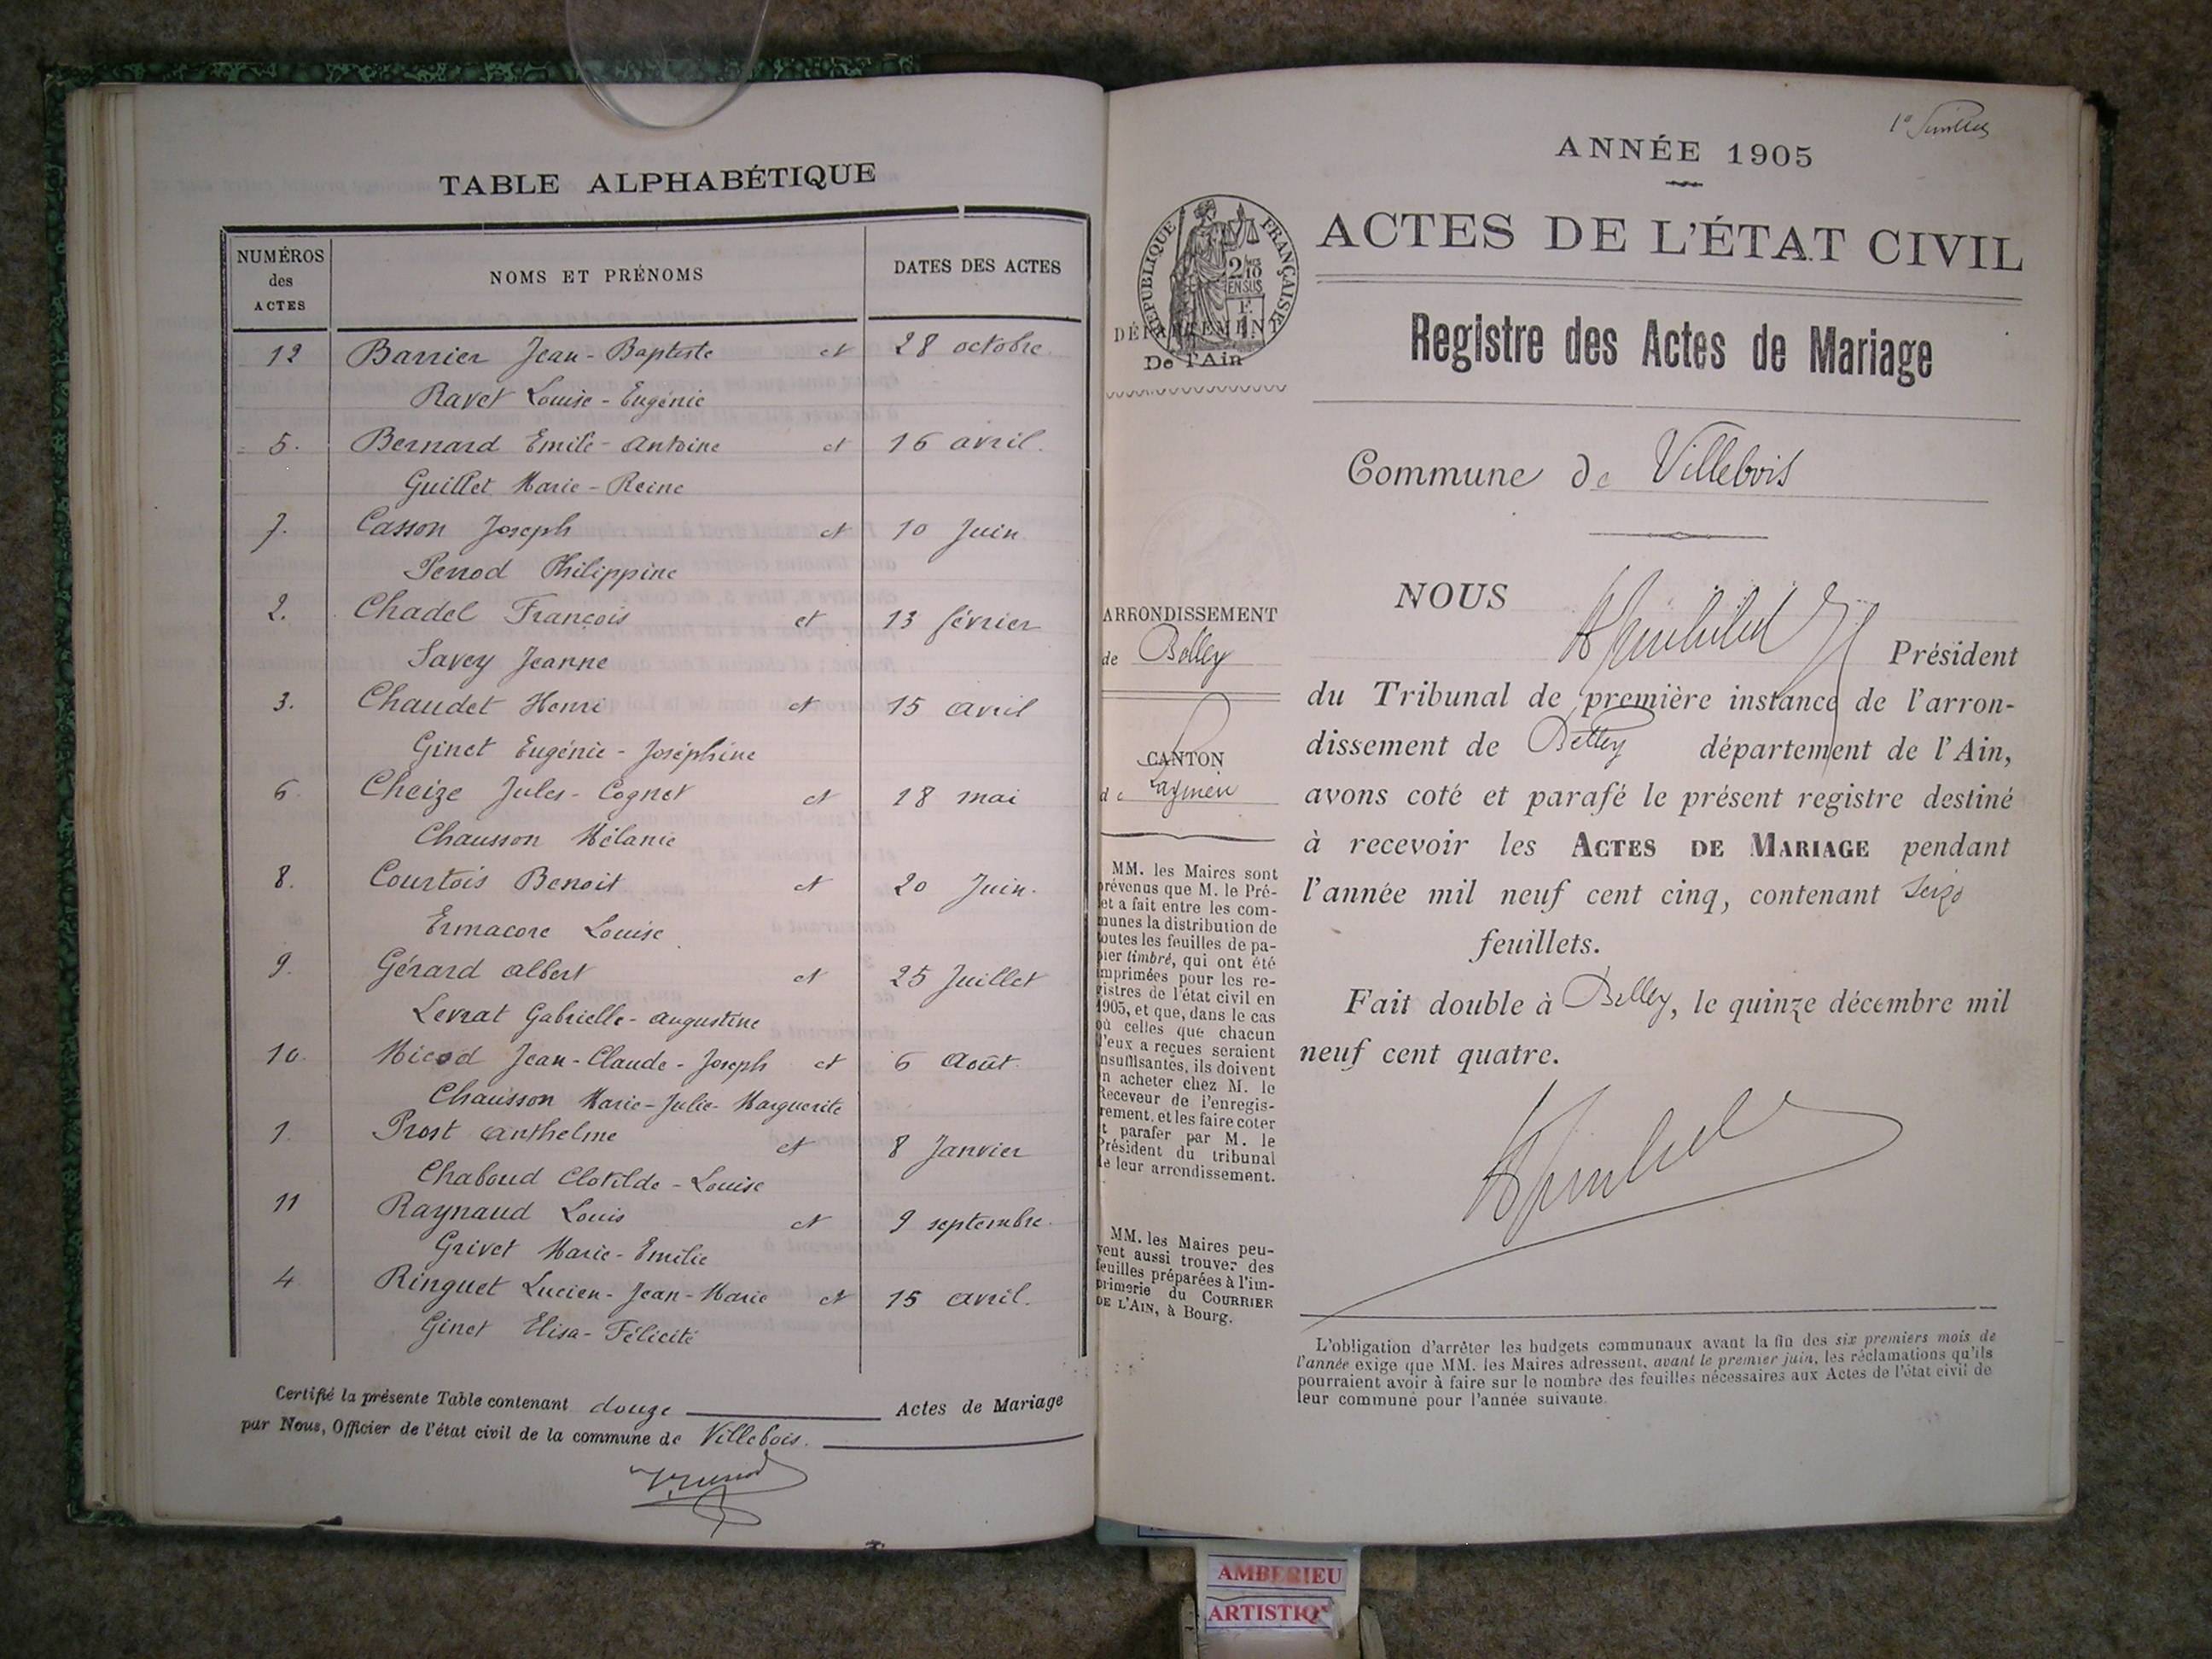 TABLE ALPHABÉTIQUE
NUMÉROS des ACTES
NOMS ET PRÉNOMS
DATES DES ACTES
12 Barrier Jean-Baptiste et 28 octobre
Ravet Louise-Eugénie
5. Bernard Emile-Antoine et 16 avril.
Guillet Marie-Reine
7. Casson Joseph et 10 Juin
Perrod Philippine
2. Chadel François et 13 février
Savey Jeanne
3. Chaudet Henri et 15 avril
Ginet Eugénie-Joséphine
6. Cheize Jules-Cognet et 18 mai
Chausson Mélanie
8. Courtois Benoit et 20 Juin.
Ermacore Louise
9. Gérard Albert et 25 Juillet
Levrat Gabrielle-Augustine
10. Nicod Jean-Claude-Joseph et 6 Août.
Chausson Marie-Julie-Marguerite
1. Prost Anthelme et 8 Janvier
Chaboud Clotilde-Louise
11 Raynaud Louis et 9 septembre.
Grivet Marie-Emilie
4 Ringuet Lucien-Jean-Marie et 15 avril.
Ginet Elisa-Félicité
Certifié la présente Table contenant douze Actes de Mariage
par Nous, Officier de l'état civil de la commune de Villebois.
ANNÉE 1905
ACTES DE L'ÉTAT CIVIL
Registre des Actes de Mariage
RÉPUBLIQUE FRANÇAISE
2/10 EN SUS
DÉPARTEMENT
De l'Ain
Commune de Villebois
ARRONDISSEMENT
de Belley
CANTON
de
MM. les Maires sont
prévenus que M. le Pré-
et a fait entre les com-
munes la distribution de
toutes les feuilles de pa-
pier timbré, qui ont été
imprimées pour les re-
gistres de l'état civil en
1905, et que, dans le cas
où celles que chacun
d'eux a reçues seraient
insuffisantes, ils doivent
en acheter chez M. le
Receveur de l'enregis-
rement, et les faire coter
et parafer par M. le
Président du tribunal
de leur arrondissement.
MM. les Maires peu-
vent aussi trouver des
feuilles préparées à l'im-
primerie du COURRIER
DE L'AIN, à Bourg.
NOUS
Président
du Tribunal de première instance de l'arron-
dissement de Belley département de l'Ain,
avons coté et parafé le présent registre destiné
à recevoir les ACTES DE MARIAGE pendant
l'année mil neuf cent cinq, contenant seize
feuillets.
Fait double à Belley, le quinze décembre mil
neuf cent quatre.
L'obligation d'arrêter les budgets communaux avant la fin des six premiers mois de
l'année exige que MM. les Maires adressent, avant le premier juin, les réclamations qu'ils
pourraient avoir à faire sur le nombre des feuilles nécessaires aux Actes de l'état civil de
leur commune pour l'année suivante.
AMBERIEU
ARTISTIQ